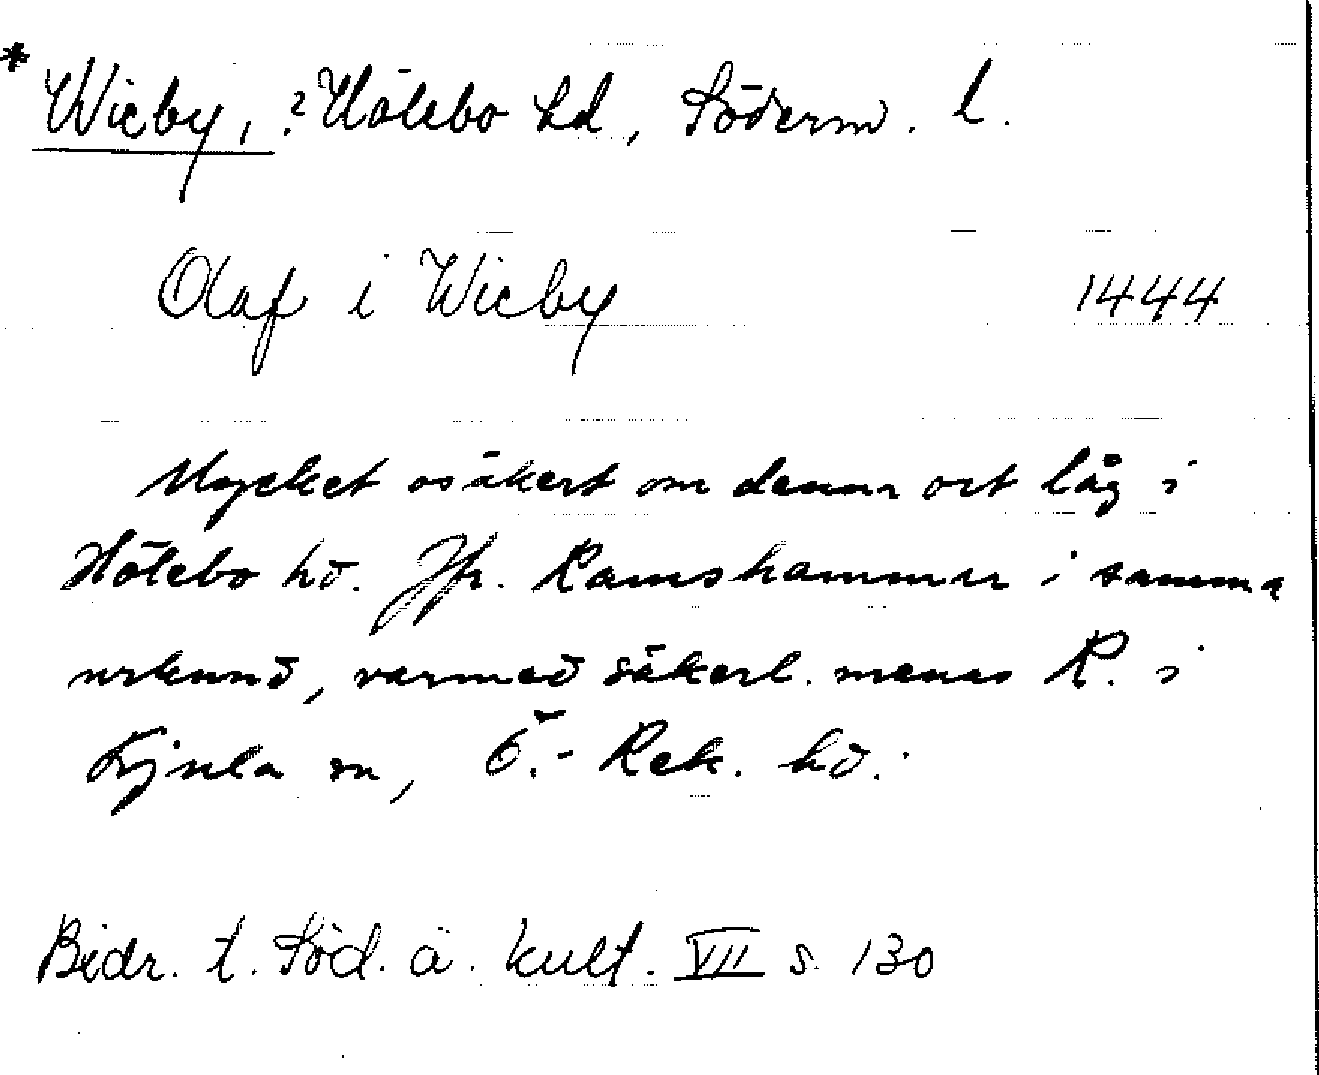 * Wieby, ? Hölebo hd, Söderm. l.
Olaf i Wieby 1444
Mycket osäkert om denna ort låg i
Hölebo hd. Jfr. Ramshammar i samma
urkund, varmed säkerl. menas R. i
Kjula sn, Ö.-Rek. hd.
Bidr. t. Söd. ä. kult. VII s. 130